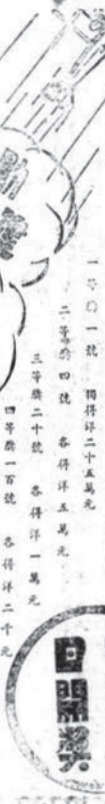 一等獎一號　獨得洋二十五萬元
二等獎四號　各得洋五萬元
三等獎二十號　各得洋一萬元
四等獎一百號　各得洋二千元
日開獎